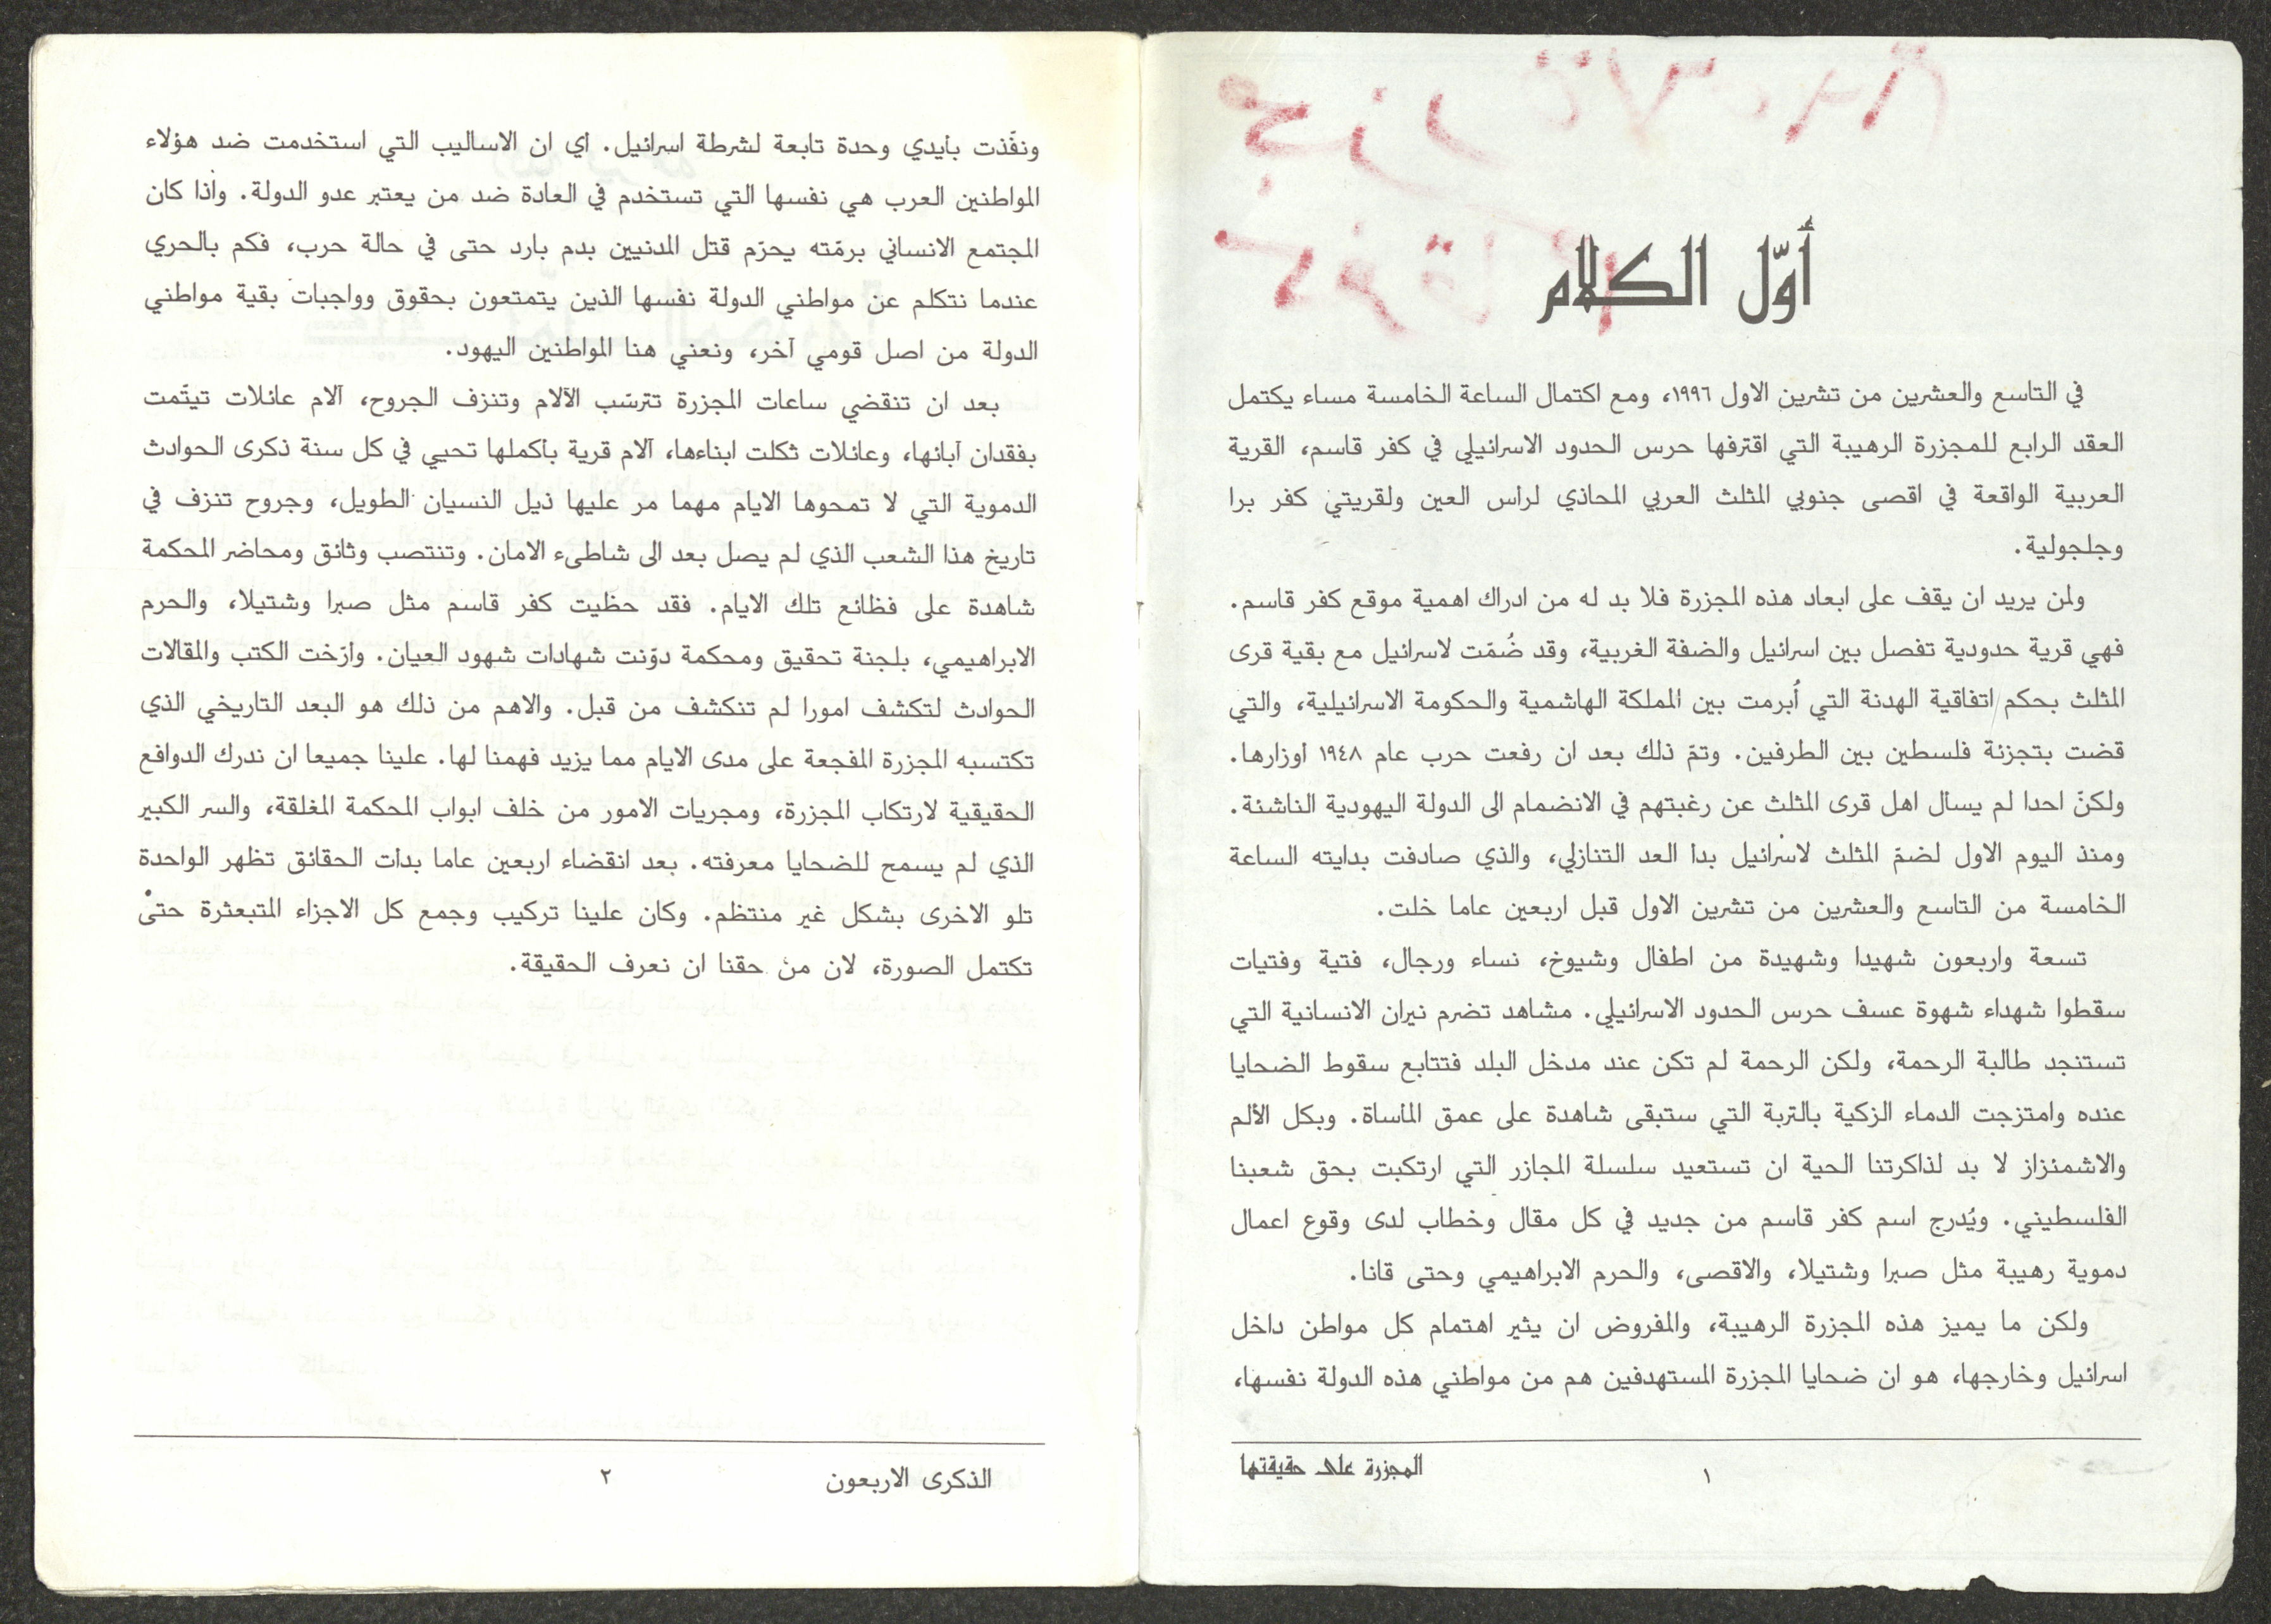 أوّل الكلام
في التاسع والعشرين من تشرين الاول ١٩٩٦، ومع اكتمال الساعة الخامسة مساء يكتمل
العقد الرابع للمجزرة الرهيبة التي اقترفها حرس الحدود الاسرائيلي في كفر قاسم، القرية
العربية الواقعة في اقصى جنوبي المثلث العربي المحاذي لراس العين ولقريتي كفر برا
وجلجولية.
ولمن يريد ان يقف على ابعاد هذه المجزرة فلا بد له من ادراك اهمية موقع كفر قاسم.
فهي قرية حدودية تفصل بين اسرائيل والضفة الغربية، وقد ضُمّت لاسرائيل مع بقية قرى
المثلث بحكم اتفاقية الهدنة التي أُبرمت بين المملكة الهاشمية والحكومة الاسرائيلية، والتي
قضت بتجزئة فلسطين بين الطرفين. وتمّ ذلك بعد ان رفعت حرب عام ١٩٤٨ اوزارها.
ولكنّ احدا لم يسأل اهل قرى المثلث عن رغبتهم في الانضمام الى الدولة اليهودية الناشئة.
ومنذ اليوم الاول لضمّ المثلث لاسرائيل بدا العد التنازلي، والذي صادفت بدايته الساعة
الخامسة من التاسع والعشرين من تشرين الاول قبل اربعين عاما خلت.
تسعة واربعون شهيدا وشهيدة من اطفال وشيوخ، نساء ورجال، فتية وفتيات
سقطوا شهداء شهوة عسف حرس الحدود الاسرائيلي. مشاهد تضرم نيران الانسانية التي
تستنجد طالبة الرحمة، ولكن الرحمة لم تكن عند مدخل البلد فتتابع سقوط الضحايا
عنده وامتزجت الدماء الزكية بالتربة التي ستبقى شاهدة على عمق المأساة. وبكل الألم
والاشمئزاز لا بد لذاكرتنا الحية ان تستعيد سلسلة المجازر التي ارتكبت بحق شعبنا
الفلسطيني. ويُدرج اسم كفر قاسم من جديد في كل مقال وخطاب لدى وقوع اعمال
دموية رهيبة مثل صبرا وشتيلا، والاقصى، والحرم الابراهيمي وحتى قانا.
ولكن ما يميز هذه المجزرة الرهيبة، والمفروض ان يثير اهتمام كل مواطن داخل
اسرائيل وخارجها، هو ان ضحايا المجزرة المستهدفين هم من مواطني هذه الدولة نفسها،
١
المجزرة على حقيقتها
ونفّذت بأيدي وحدة تابعة لشرطة اسرائيل. اي ان الاساليب التي استخدمت ضد هؤلاء
المواطنين العرب هي نفسها التي تستخدم في العادة ضد من يعتبر عدو الدولة. واذا كان
المجتمع الانساني برمّته يحرّم قتل المدنيين بدم بارد حتى في حالة حرب، فكم بالحري
عندما نتكلم عن مواطني الدولة نفسها الذين يتمتعون بحقوق وواجبات بقية مواطني
الدولة من اصل قومي آخر، ونعني هنا المواطنين اليهود.
بعد ان تنقضي ساعات المجزرة تترسّب الآلام وتنزف الجروح، آلام عائلات تيتّمت
بفقدان آبائها، وعائلات ثكلت ابناءها، آلام قرية بأكملها تحيي في كل سنة ذكرى الحوادث
الدموية التي لا تمحوها الايام مهما مر عليها ذيل النسيان الطويل، وجروح تنزف في
تاريخ هذا الشعب الذي لم يصل بعد الى شاطىء الامان. وتنتصب وثائق ومحاضر المحكمة
شاهدة على فظائع تلك الايام. فقد حظيت كفر قاسم مثل صبرا وشتيلا، والحرم
الابراهيمي، بلجنة تحقيق ومحكمة دوّنت شهادات شهود العيان. وارّخت الكتب والمقالات
الحوادث لتكشف امورا لم تنكشف من قبل. والاهم من ذلك هو البعد التاريخي الذي
تكتسبه المجزرة المفجعة على مدى الايام مما يزيد فهمنا لها. علينا جميعا ان ندرك الدوافع
الحقيقية لارتكاب المجزرة، ومجريات الامور من خلف ابواب المحكمة المغلقة، والسر الكبير
الذي لم يسمح للضحايا معرفته. بعد انقضاء اربعين عاما بدأت الحقائق تظهر الواحدة
تلو الاخرى بشكل غير منتظم. وكان علينا تركيب وجمع كل الاجزاء المتبعثرة حتى
تكتمل الصورة، لان من حقنا ان نعرف الحقيقة.
الذكرى الاربعون
٢